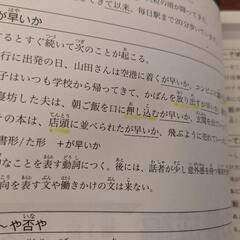 て以来、毎日駅まで20分歩いてい
が早いか
るとすぐ続いて次のことが起こる。
行に出発の日、山田さんは空港に着くが早いか、
子はいつも学校から帰ってきて、かばんを
寝坊した夫は、朝ご飯を口に押し込むが早いか、玄関を
の本は、店頭に並べられたが早いか、飛ぶように売れて
書形/た形 +が早いか
なことを表す動詞につく。後には、話者が少し意外感を持つ
向を表す文や働きかけの文は来ない。
～や否や